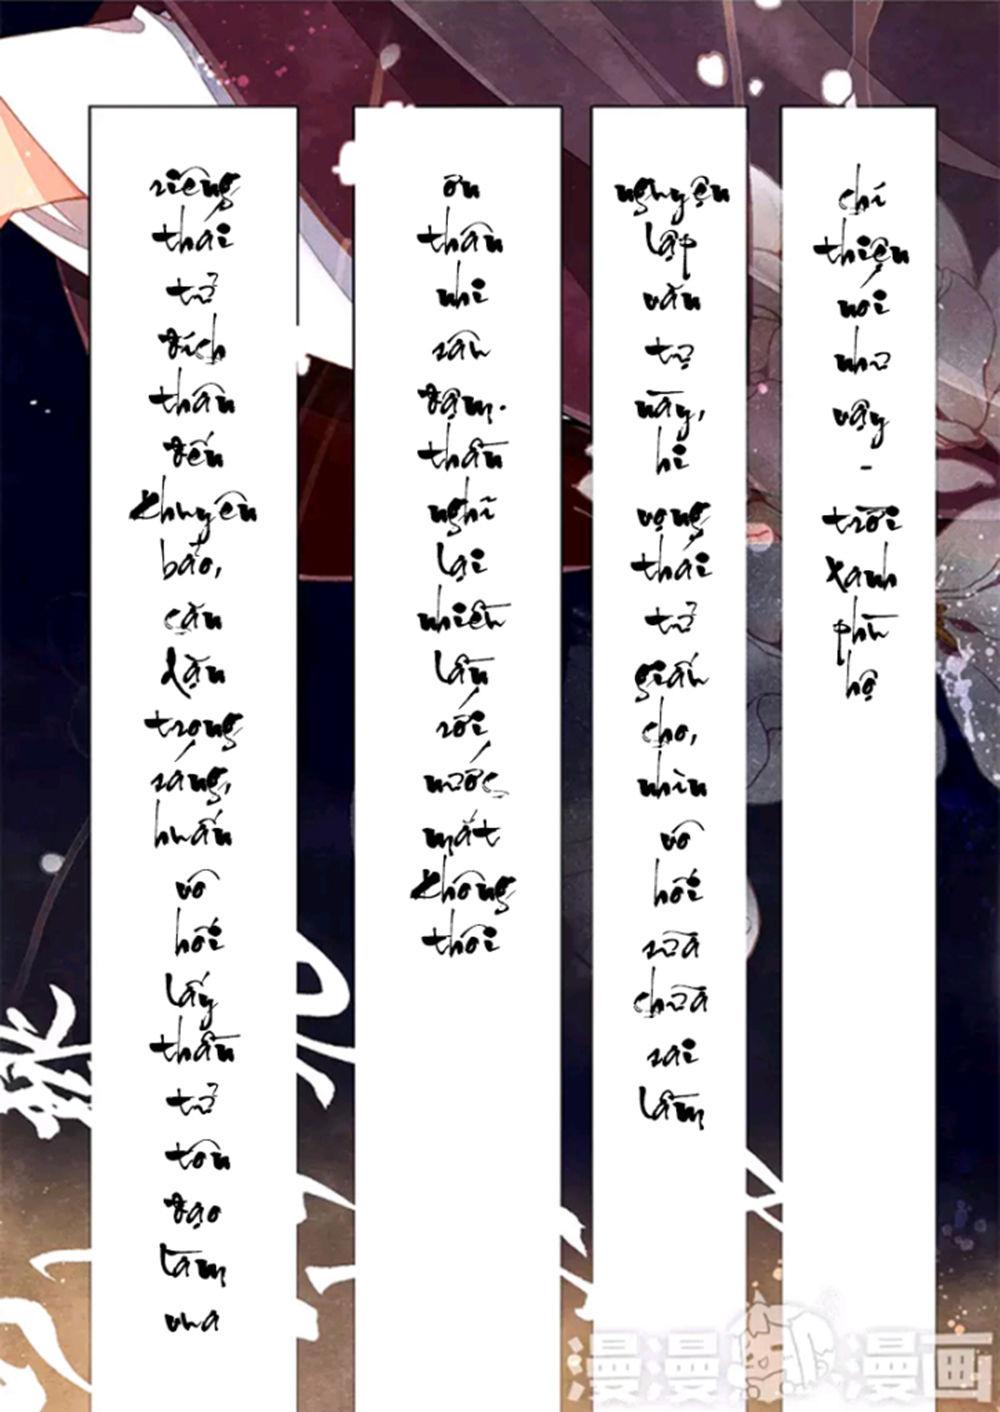 riêng
thái
tử
đích
thân
đến
khuyên
bảo,
căn
dặn
trọng
sáng,
huấn
vô
hối
lấy
thần
tử
tôn
đạo
làm
vua
ôn
thần
nhi
sân
đậm.
thần
nghĩ
lại
nhiều
lần
rồi
nước
mắt
không
thôi
nguyện
lập
văn
tự
này,
hi
vọng
thái
tử
giấu
cho,
nhìn
vô
hối
sửa
chữa
sai
lầm
chí
thiện
nói
như
vậy
-
trời
xanh
phù
hộ
漫漫漫画